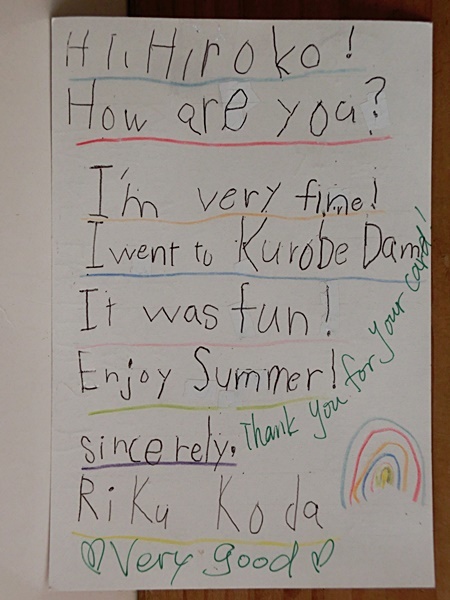 Hi, Hiroko!
How are you?
I'm very fine!
I went to Kurobe Dam!
It was fun!
Enjoy Summer!
sincerely,
Thank you for your card!
Riku Koda
♡Very good♡